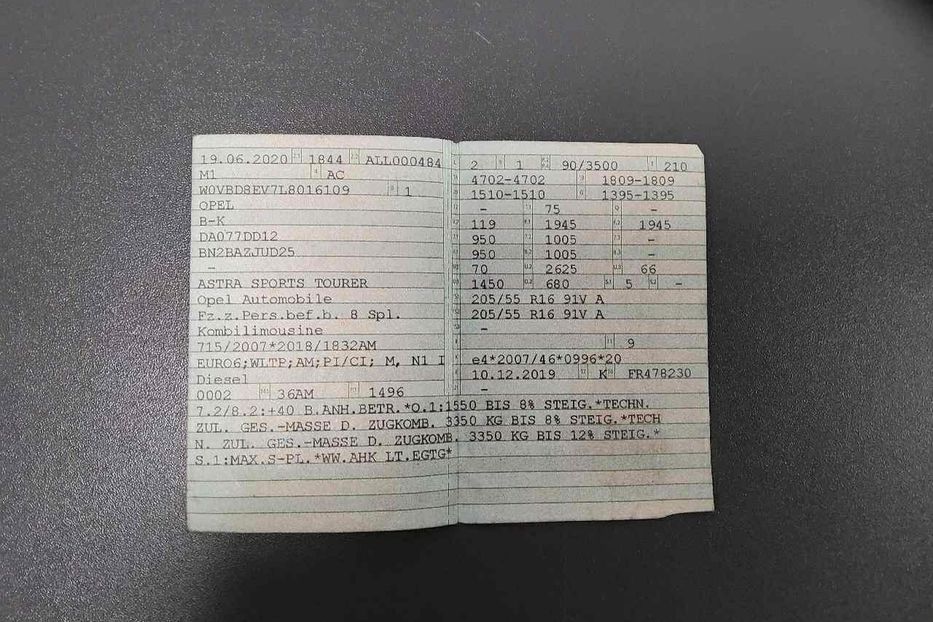 19.06.2020 1844 ALL000484
M1 AC
W0VBD8EV7L8016109 1
OPEL
B-K
DA077DD12
BN2BAZJUD25
-
ASTRA SPORTS TOURER
Opel Automobile
Fz.z.Pers.bef.b. 8 Spl.
Kombilimousine
715/2007*2018/1832AM
EURO6;WLTP;AM;PI/CI; M, N1 I
Diesel
0002 36AM 1496
2 1 90/3500 210
4702-4702 1809-1809
1510-1510 1395-1395
- 75 -
119 1945 1945
950 1005 -
950 1005 -
70 2625 66
1450 680 5 -
205/55 R16 91V A
205/55 R16 91V A
-
9
e4*2007/46*0996*20
10.12.2019 K FR478230
-
7.2/8.2:+40 B.ANH.BETR.*O.1:1550 BIS 8% STEIG.*TECHN.
ZUL. GES.-MASSE D. ZUGKOMB. 3350 KG BIS 8% STEIG.*TECH
N. ZUL. GES.-MASSE D. ZUGKOMB. 3350 KG BIS 12% STEIG.*
S.1:MAX.S-PL.*WW.AHK LT.EGTG*